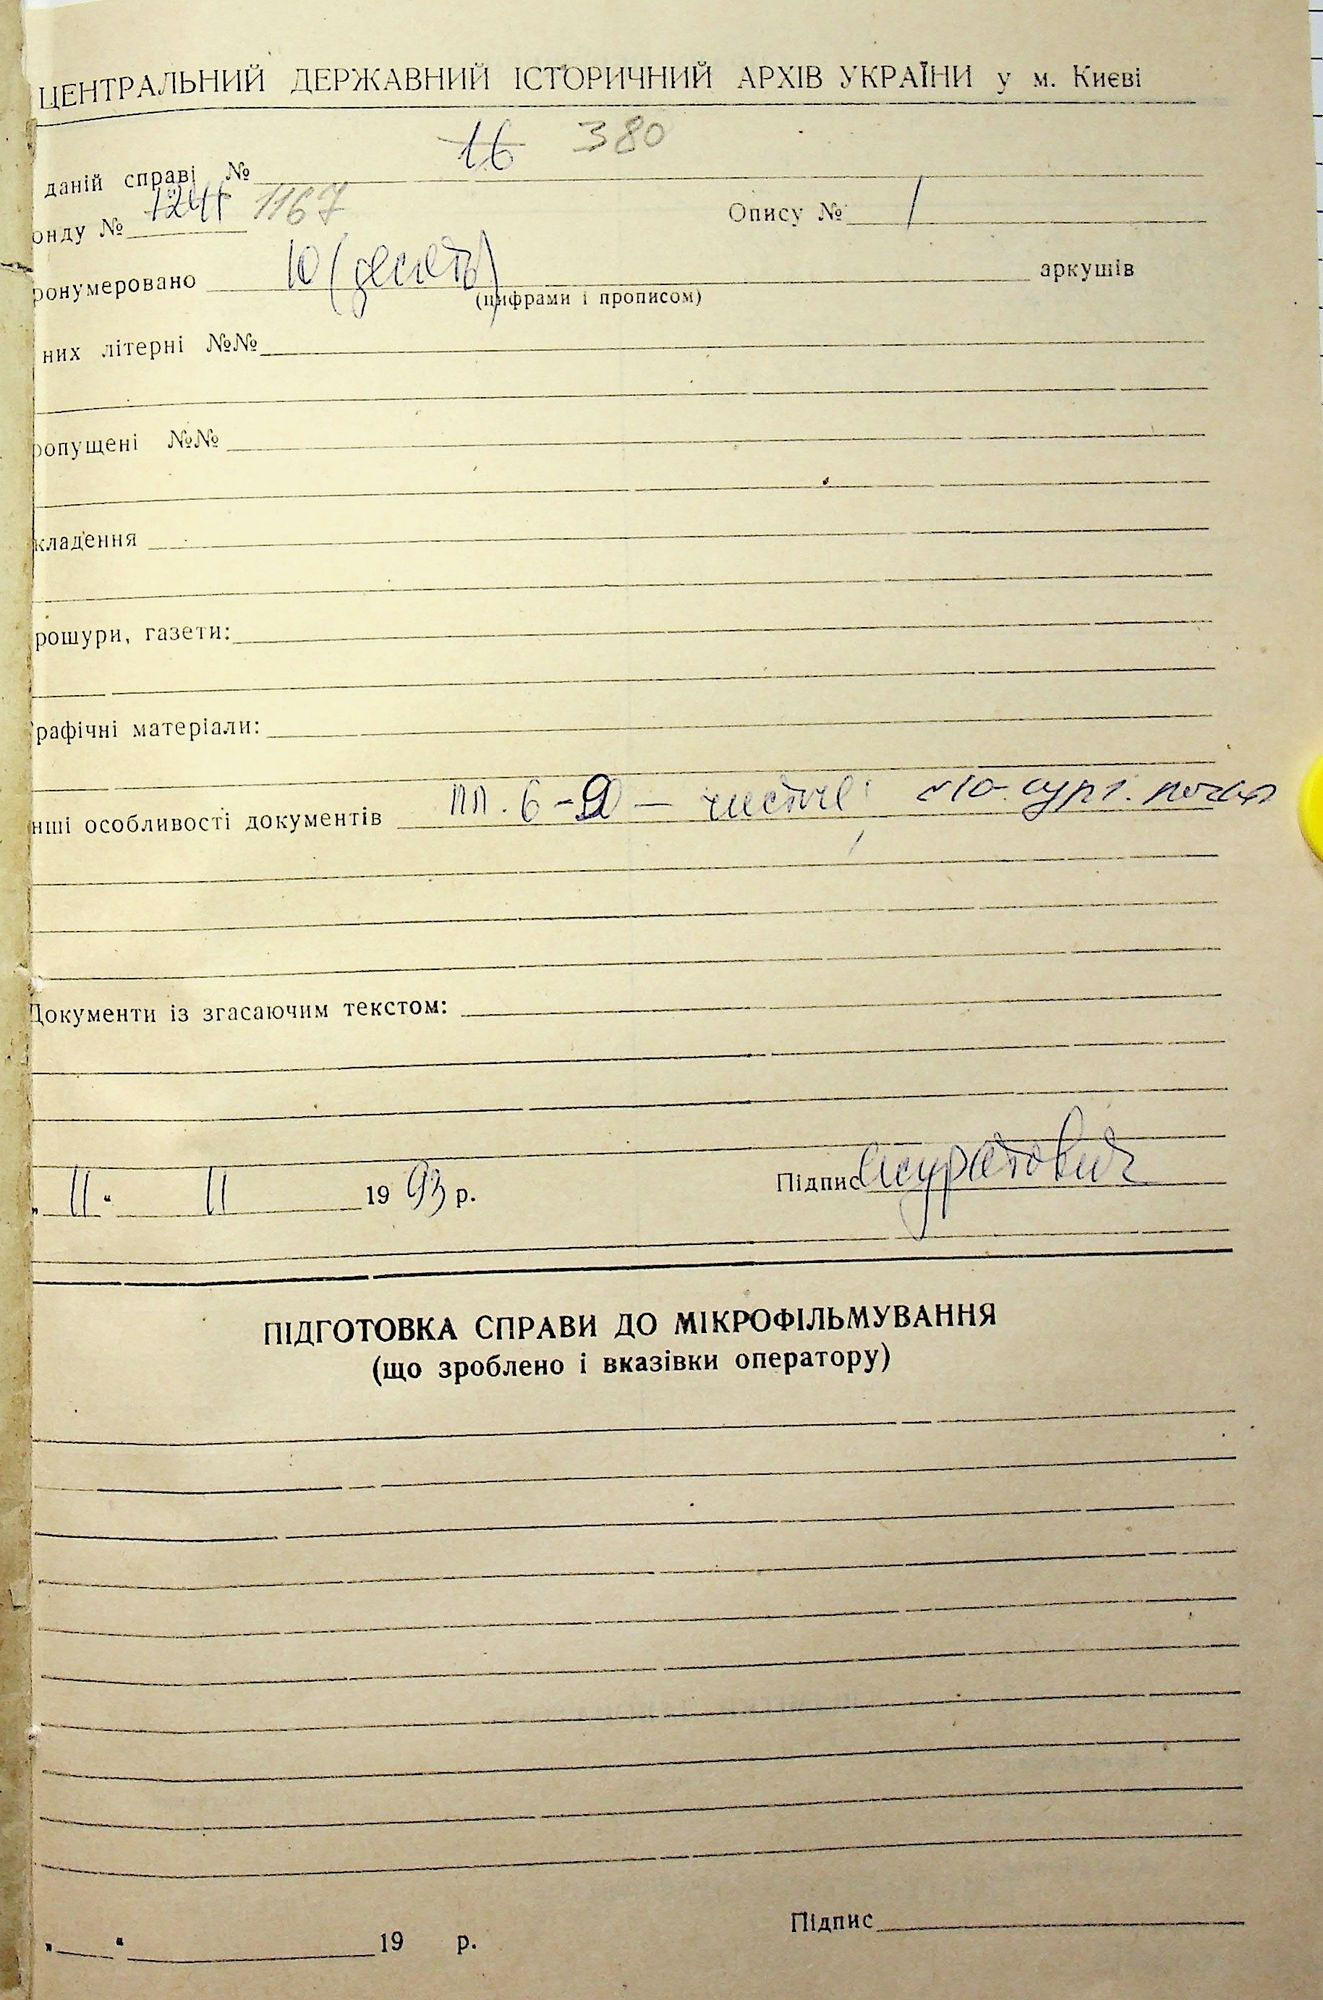 ЦЕНТРАЛЬНИЙ ДЕРЖАВНИЙ ІСТОРИЧНИЙ АРХІВ УКРАЇНИ у м. Києві
даній справі № 16 380
онду № 1167 Опису № 1
ронумеровано 10 (десять) аркушів
(цифрами і прописом)
них літерні №№
ропущені №№
кладення
рошури, газети:
рафічні матеріали:
нші особливості документів пп. 6-9 — чисті
Документи із згасаючим текстом:
„ 11 “ 11 1993 р. Підпис
ПІДГОТОВКА СПРАВИ ДО МІКРОФІЛЬМУВАННЯ
(що зроблено і вказівки оператору)
„ “ 19 р. Підпис